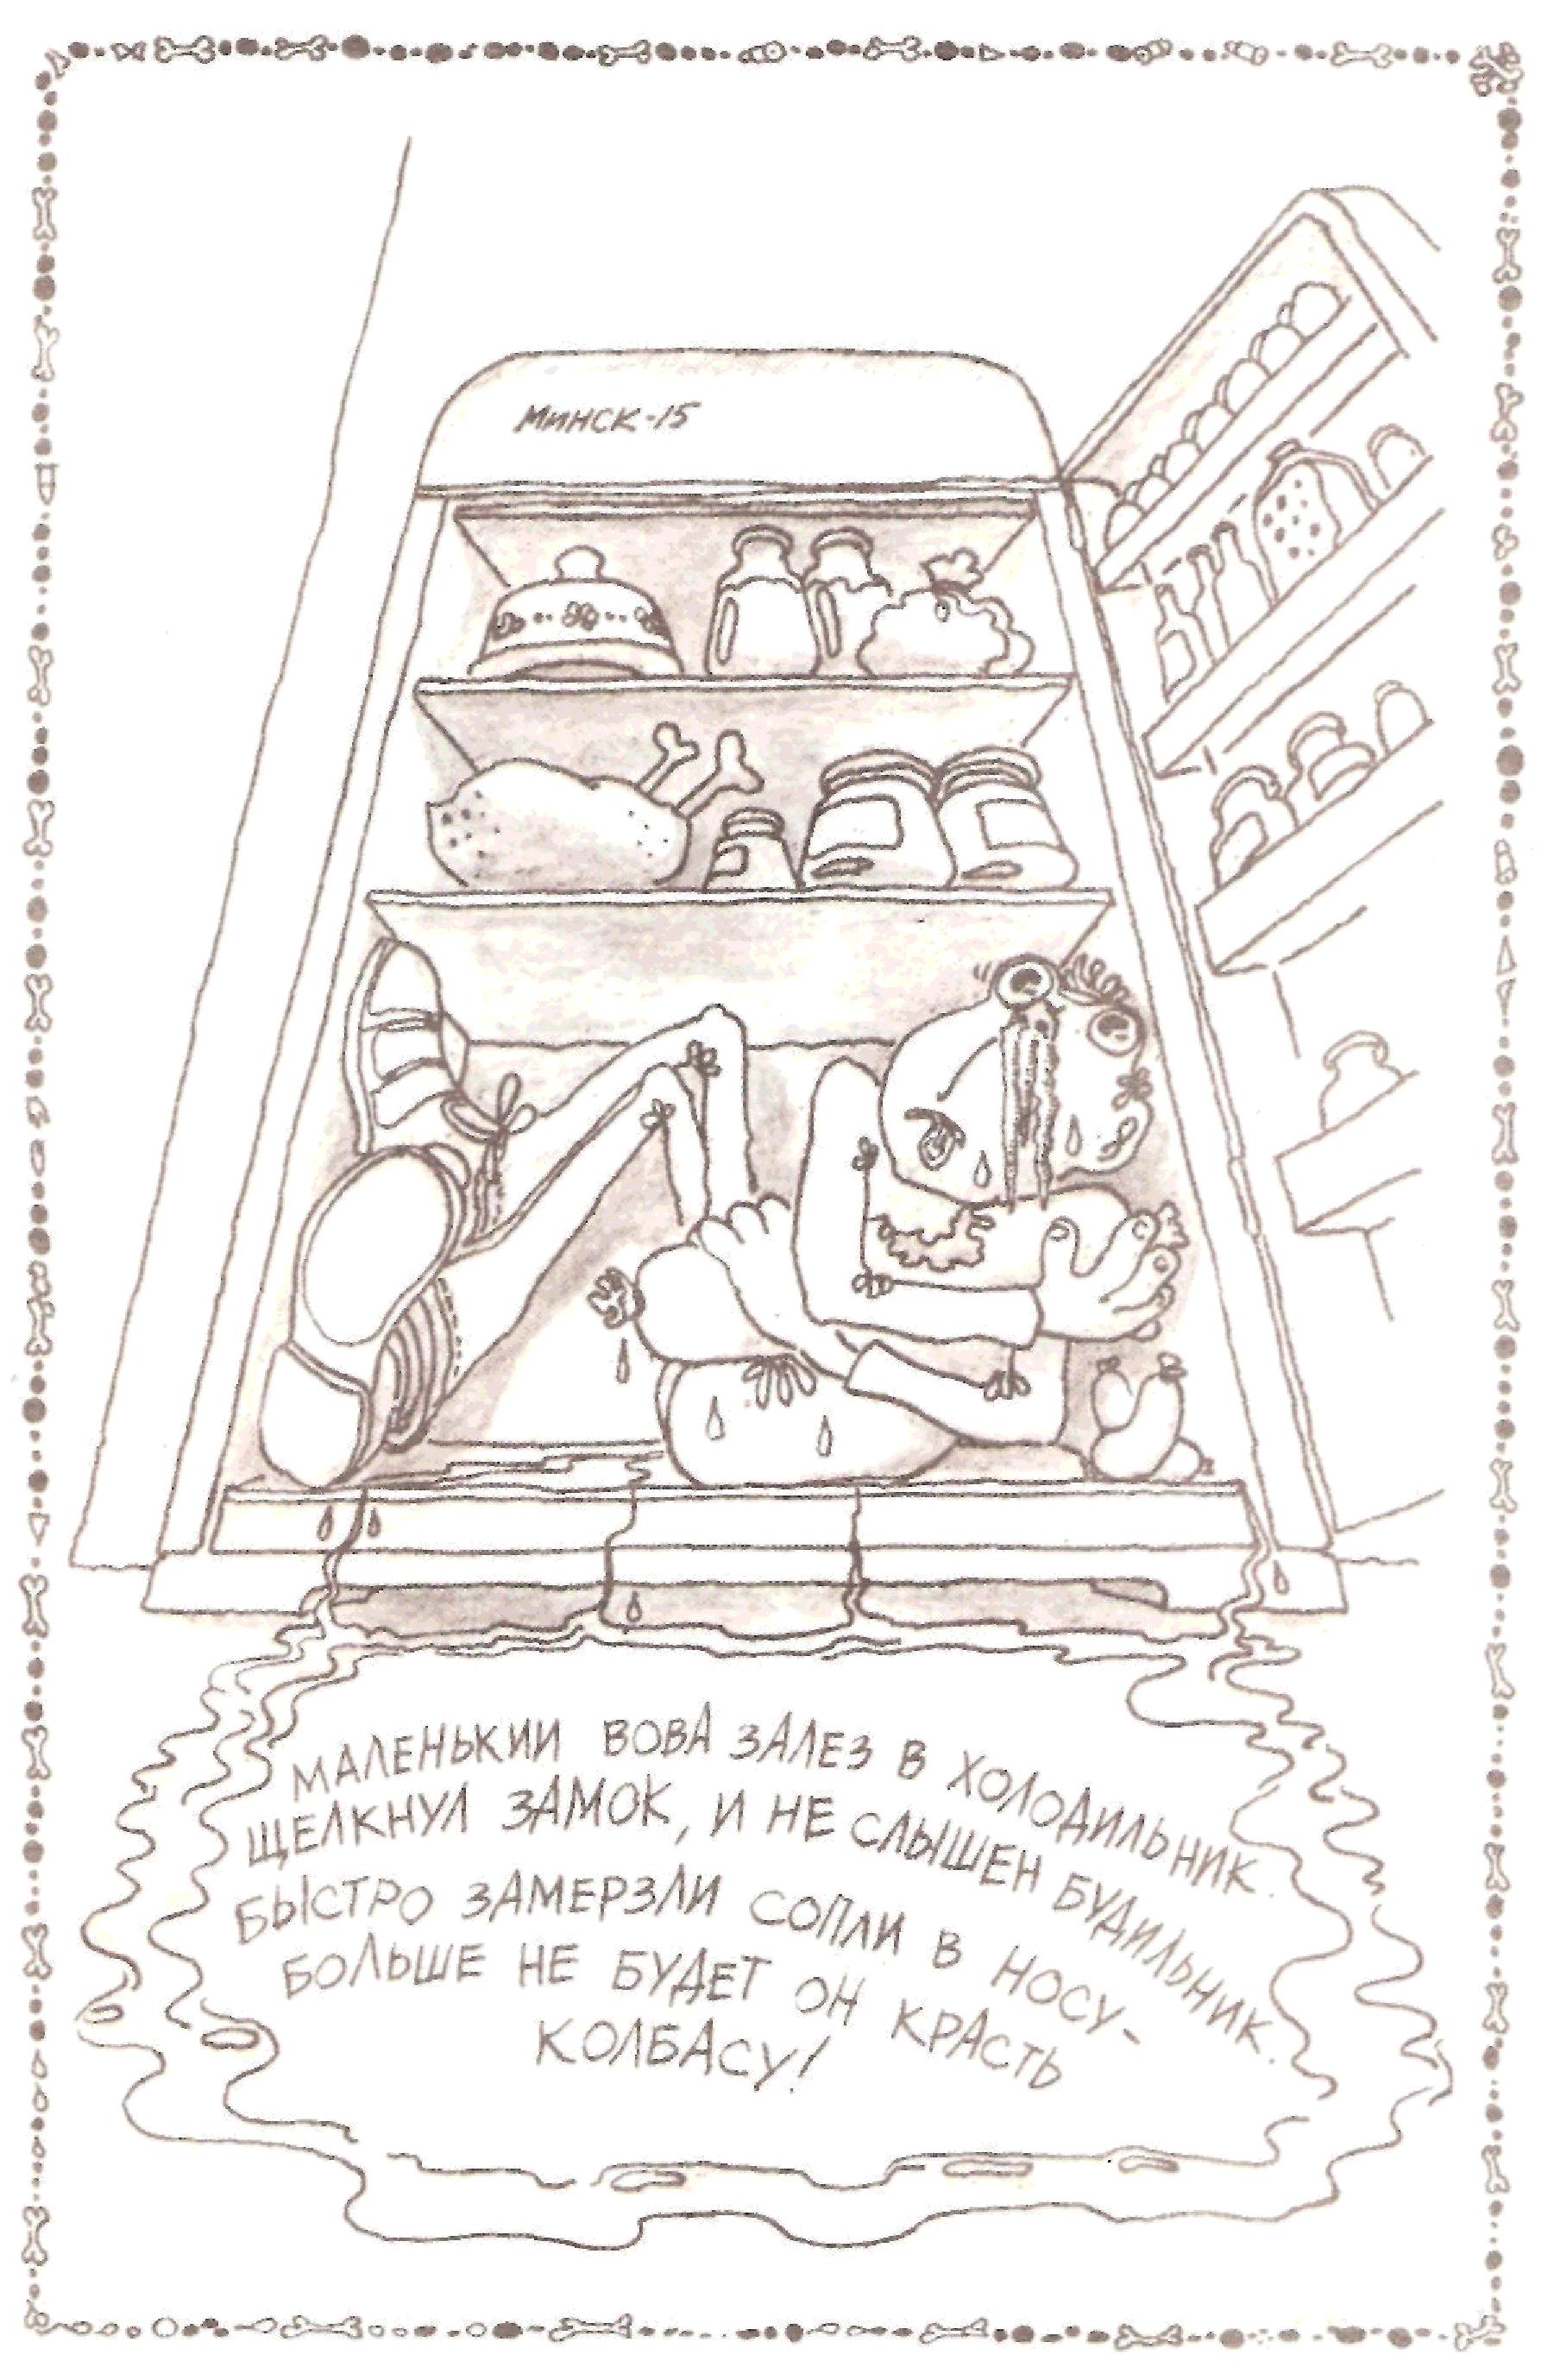 МИНСК-15
МАЛЕНЬКИЙ ВОВА ЗАЛЕЗ В ХОЛОДИЛЬНИК.
ЩЕЛКНУЛ ЗАМОК, И НЕ СЛЫШЕН БУДИЛЬНИК.
БЫСТРО ЗАМЕРЗЛИ СОПЛИ В НОСУ-
БОЛЬШЕ НЕ БУДЕТ ОН КРАСТЬ
КОЛБАСУ!